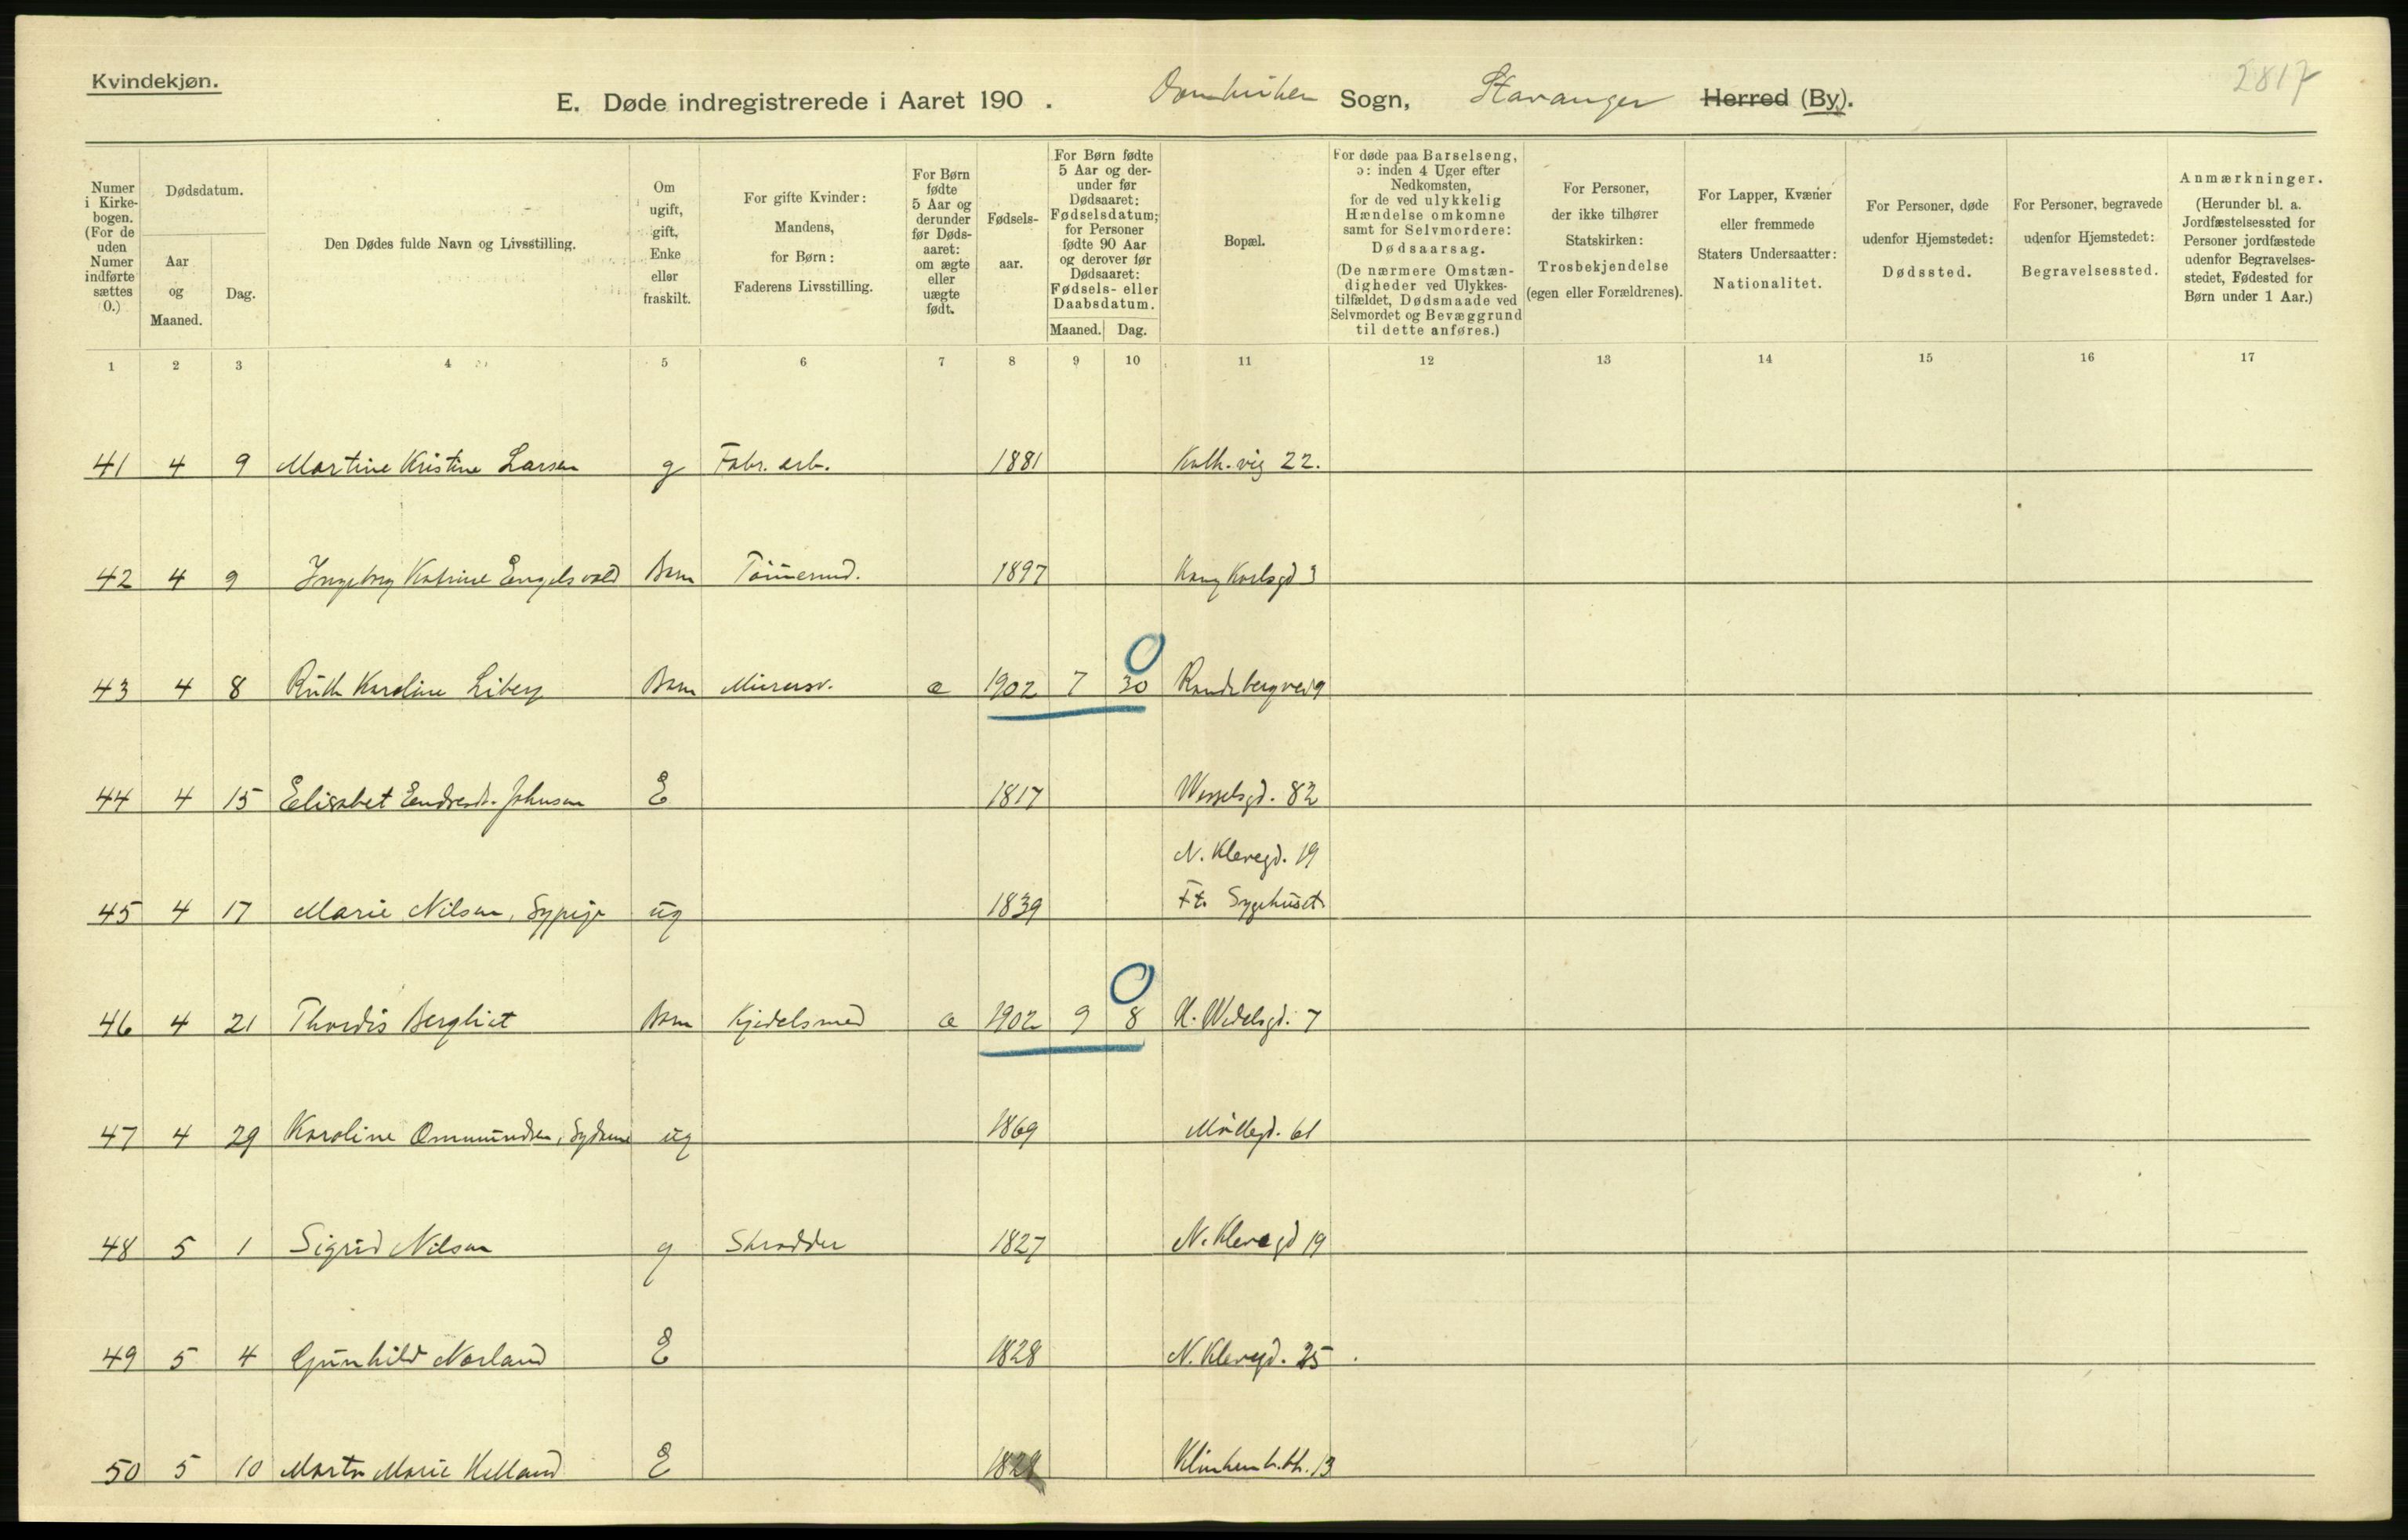 Kvindekjøn.
2817
E. Døde indregistrerede i Aaret 190 . Domkirken Sogn, Stavanger Herred (By).
Numer i Kirkebogen. (For de uden Numer indførte sættes 0.)
Dødsdatum.
Aar og Maaned.
Dag.
Den Dødes fulde Navn og Livsstilling.
Om ugift, gift, Enke eller fraskilt.
For gifte Kvinder: Mandens, for Børn: Faderens Livsstilling.
For Børn fødte 5 Aar og derunder før Dødsaaret: om ægte eller uægte født.
Fødselsaar.
For Børn fødte 5 Aar og derunder før Dødsaaret: Fødselsdatum; for Personer fødte 90 Aar og derover før Dødsaaret: Fødsels- eller Daabsdatum.
Maaned. Dag.
Bopæl.
For døde paa Barselseng, ɔ: inden 4 Uger efter Nedkomsten, for de ved ulykkelig Hændelse omkomne samt for Selvmordere: Dødsaarsag. (De nærmere Omstændigheder ved Ulykkestilfældet, Dødsmaade ved Selvmordet og Bevæggrund til dette anføres.)
For Personer, der ikke tilhører Statskirken: Trosbekjendelse (egen eller Forældrenes).
For Lapper, Kvæner eller fremmede Staters Undersaatter: Nationalitet.
For Personer, døde udenfor Hjemstedet: Dødssted.
For Personer, begravede udenfor Hjemstedet: Begravelsessted.
Anmærkninger. (Herunder bl. a. Jordfæstelsessted for Personer jordfæstede udenfor Begravelsesstedet, Fødested for Børn under 1 Aar.)
1 2 3 4 5 6 7 8 9 10 11 12 13 14 15 16 17
41 4 9 Martine Kristine Larsen g Fabr. arb. 1881 Kalh. vig 22.
42 4 9 Ingeborg Katrine Engelsvold Barn Tømmermd. 1897 Kong Karlsgd 3
43 4 8 Ruth Karoline Liberg Barn Murersv. æ 1902 7 30 Randebergvei 9
44 4 15 Elisabet Endresdt. Johnsen E 1817 Wesselsgd. 82
N. Klevegd. 19
45 4 17 Marie Nilsen, Sypige ug 1839 Ft. Sygehuset
46 4 21 Thordis Bergliot Barn Kjedelsmed æ 1902 9 8 N. Wedelsgd. 7
47 4 29 Karoline Ommundsen, Sydame ug 1869 Møllegd. 61
48 5 1 Sigrid Nilsen g Skrædder 1827 N. Klevegd 19
49 5 4 Gunhild Norland E 1828 N. Klevegd. 25
50 5 10 Marta Marie Helland E 13